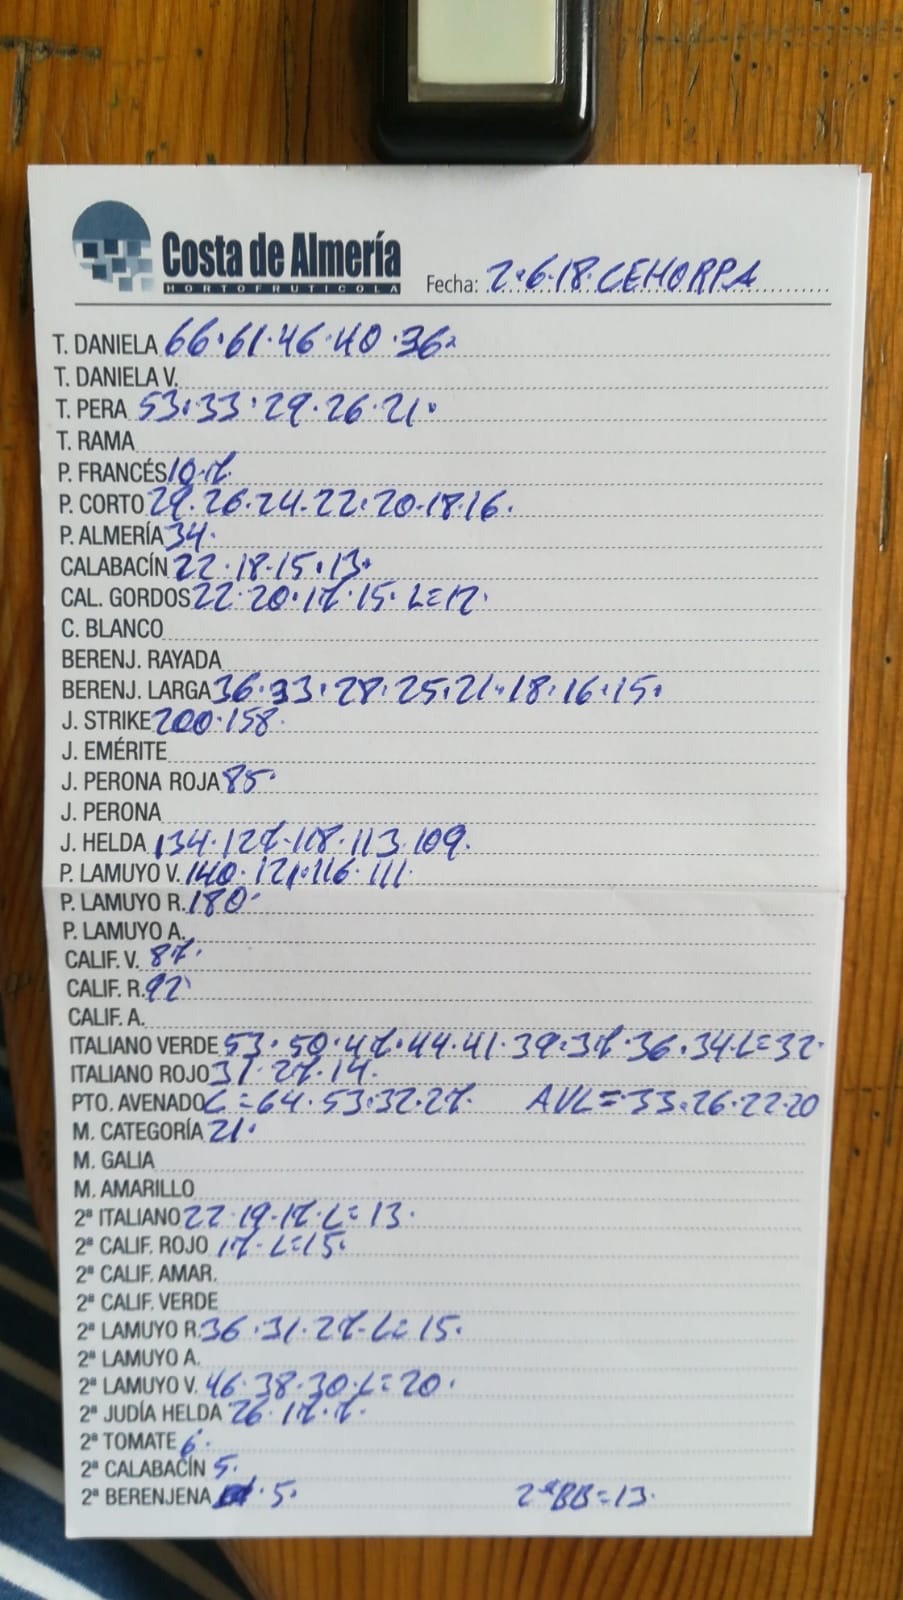 Costa de Almería
HORTOFRUTICOLA
Fecha: 2·6·18·CEHORPA
T. DANIELA 66·61·46·40·36·
T. DANIELA V.
T. PERA 53·33·29·26·21·
T. RAMA
P. FRANCÉS 10·7·
P. CORTO 29·26·24·22·20·18·16·
P. ALMERÍA 34·
CALABACÍN 22·18·15·13·
CAL. GORDOS 22·20·17·15·L=12·
C. BLANCO
BERENJ. RAYADA
BERENJ. LARGA 36·33·28·25·21·18·16·15·
J. STRIKE 200·158·
J. EMÉRITE
J. PERONA ROJA 85·
J. PERONA
J. HELDA 134·127·118·113·109·
P. LAMUYO V. 140·121·116·111·
P. LAMUYO R. 180·
P. LAMUYO A.
CALIF. V. 87·
CALIF. R. 92·
CALIF. A.
ITALIANO VERDE 53·50·47·44·41·39·37·36·34·L=32·
ITALIANO ROJO 31·27·14·
PTO. AVENADO C=64·53·32·27· AVL=33·26·22·20
M. CATEGORÍA 21·
M. GALIA
M. AMARILLO
2ª ITALIANO 22·19·17·L=13·
2ª CALIF. ROJO 17·L=15·
2ª CALIF. AMAR.
2ª CALIF. VERDE
2ª LAMUYO R. 36·31·27·L=15·
2ª LAMUYO A.
2ª LAMUYO V. 46·38·30·L=20·
2ª JUDÍA HELDA 26·17·7·
2ª TOMATE 6·
2ª CALABACÍN 5·
2ª BERENJENA ·5· 2ªBB=13·